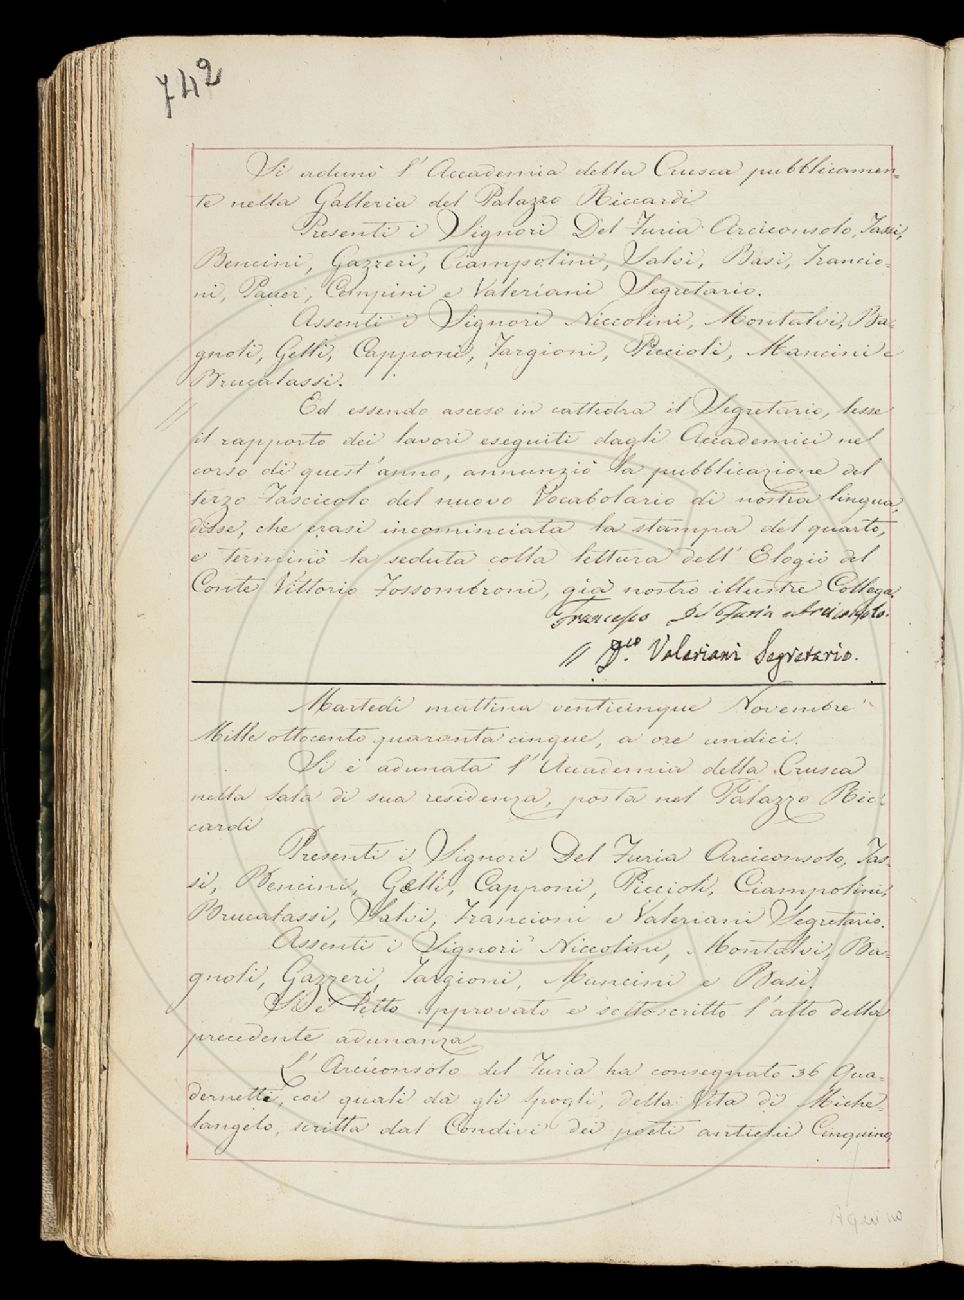 742
Si adunò l'Accademia della Crusca pubblicamen=
te nella Galleria del Palazzo Riccardi
Presenti i Signori Del Furia Arciconsolo, Tassi,
Bencini, Gazzeri, Ciampolini, Salvi, Basi, Francio=
ni, Pacer, Compini e Valeriani Segretario.
Assenti i Signori Niccolini, Montalvi, Ba=
gnoli, Gelli, Capponi, Targioni, Piccioli, Mancini e
Brucalassi.
// Ed essendo asceso in cattedra il Segretario, lesse
il rapporto dei lavori eseguiti dagli Accademici nel
corso di quest'anno, annunziò la pubblicazione del
terzo Fascicolo del nuovo Vocabolario di nostra lingua,
disse, che erasi incominciata la stampa del quarto,
e terminò la seduta colla lettura dell'Elogio del
Conte Vittorio Fossombroni, già nostro illustre Collega.
Francesco Del Furia Arciconsolo.
// Valeriani Segretario.
Martedì mattina venticinque Novembre
Mille ottocento quaranta cinque, a ore undici.
Si è adunata l'Accademia della Crusca
nella Sala di sua residenza, posta nel Palazzo Ric=
cardi
Presenti i Signori Del Furia Arciconsolo, Tas=
si, Bencini, Gelli, Capponi, Piccioli, Ciampolini,
Brucalassi, Salvi, Francioni e Valeriani Segretario.
Assenti i Signori Niccolini, Montalvi, Ba=
gnoli, Gazzeri, Targioni, Mancini e Basi.
Si è letto approvato e sottoscritto l'atto della
precedente adunanza
L'Arciconsolo del Furia ha consegnato 36 Qua=
dernetti, coi quali dà gli spogli, della Vita di Miche=
langelo, scritta dal Condivi dei poeti antichi Cinquino,
Aquino